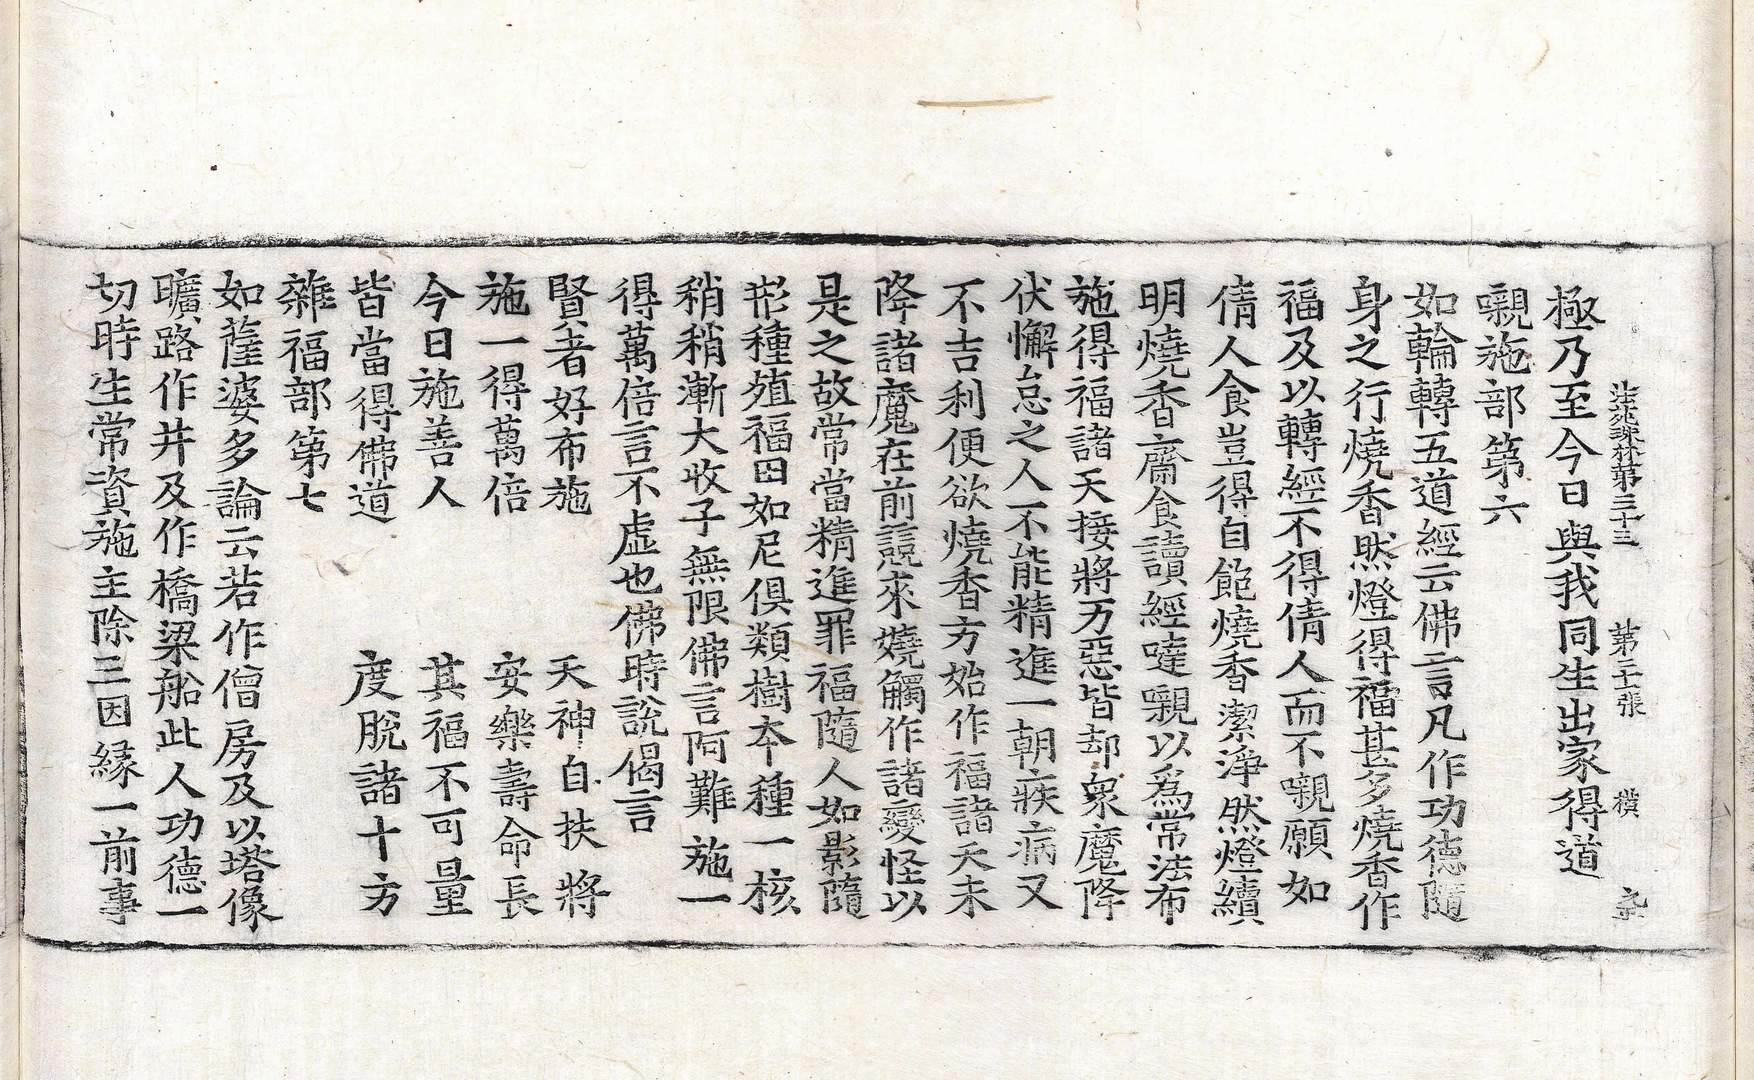 法苑珠林第三十三　第二十張　横
極乃至今日與我同生出家得道
嚫施部第六
如輪轉五道經云佛言凡作功德隨
身之行燒香然燈得福甚多燒香作
福及以轉經不得倩人而不嚫願如
倩人食豈得自飽燒香潔淨然燈續
明燒香齋食讀經噠嚫以爲常法布
施得福諸天接將万惡皆却衆魔降
伏懈怠之人不能精進一朝疾病又
不吉利便欲燒香方始作福諸天未
降諸魔在前競來嬈觸作諸變怪以
是之故常當精進罪福隨人如影隨
形種殖福田如尼俱類樹本種一核
稍稍漸大收子無限佛言阿難施一
得萬倍言不虛也佛時說偈言
賢者好布施　天神自扶將
施一得萬倍　安樂壽命長
今日施善人　其福不可量
皆當得佛道　度脫諸十方
雜福部第七
如薩婆多論云若作僧房及以塔像
曠路作井及作橋梁船此人功德一
切時生常資施主除三因緣一前事